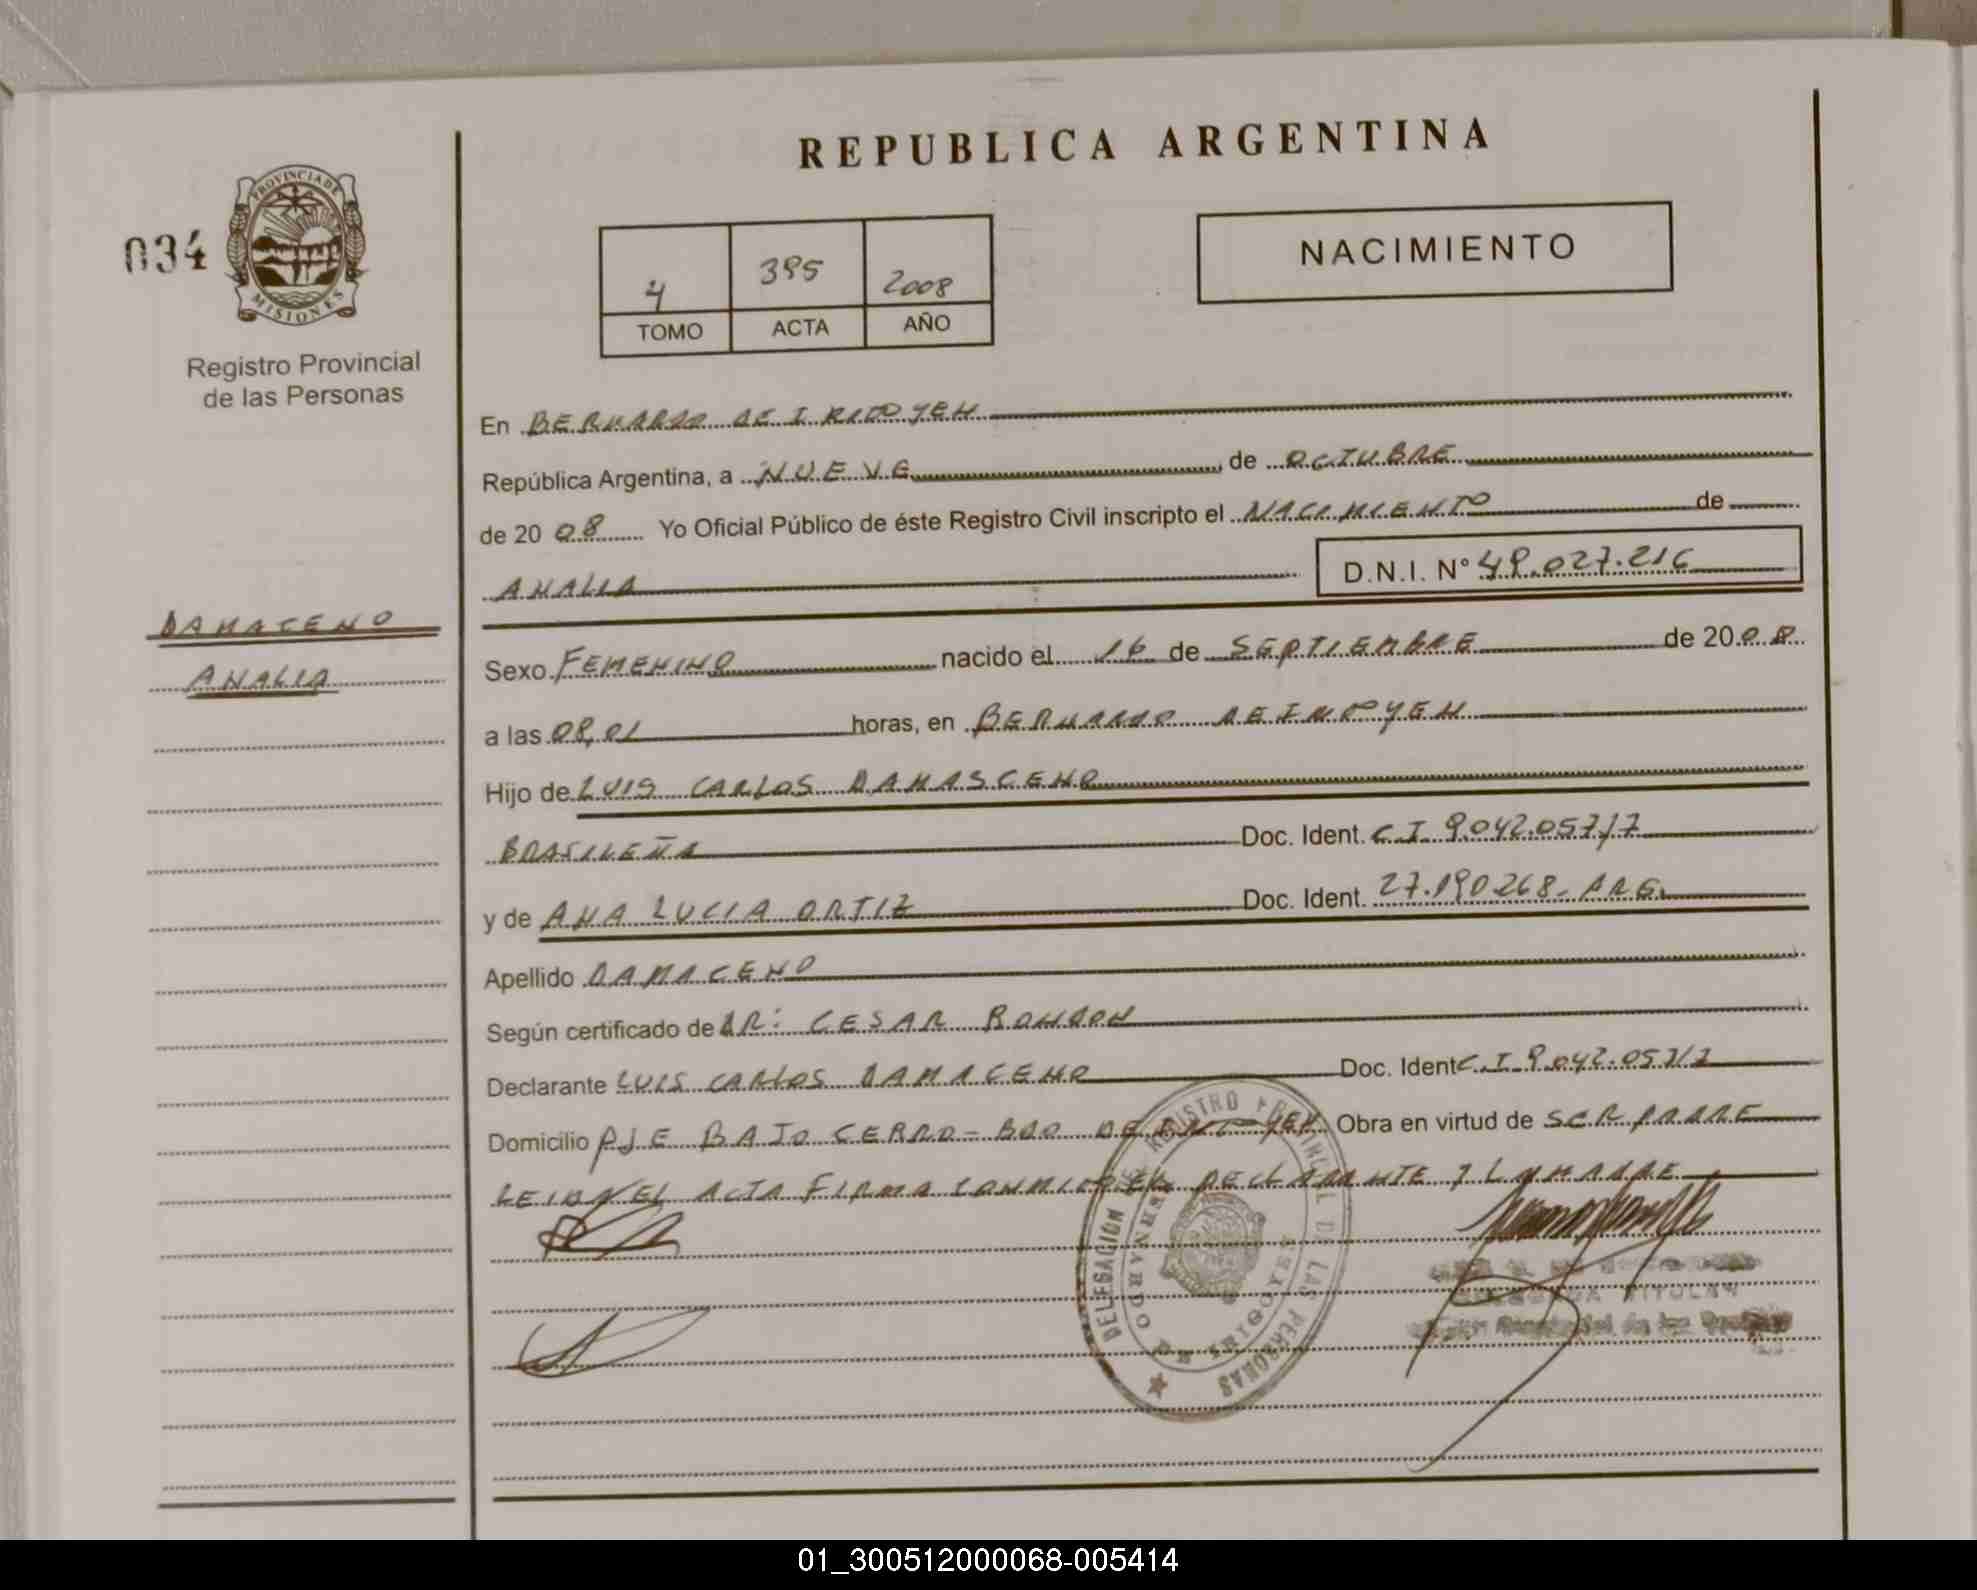 REPUBLICA ARGENTINA
034
PROVINCIA DE
MISIONES
Registro Provincial
de las Personas
4 395 2008
TOMO ACTA AÑO
NACIMIENTO
En BERNARDO DE IRIGOYEN
República Argentina, a NUEVE de OCTUBRE
de 2008 Yo Oficial Público de éste Registro Civil inscripto el NACIMIENTO de
ANALIA D.N.I. N° 49.027.216
DAMACENO
ANALIA
Sexo FEMENINO nacido el 16 de SEPTIEMBRE de 2008
a las 08,01 horas, en BERNARDO DE IRIGOYEN
Hijo de LUIS CARLOS DAMASCENO
BRASILEÑA Doc. Ident. C.I 9.042.057/7
y de ANA LUCIA ORTIZ Doc. Ident. 27.190268. ARG.
Apellido DAMACENO
Según certificado de DR: CESAR RONDON
Declarante LUIS CARLOS DAMACENO Doc. Ident C.I 9.042.057/7
Domicilio PJE BAJO CERRO - BDO DE IRIGOYEN Obra en virtud de SER PADRE
LEIDA EL ACTA FIRMA CONMIGO EL DECLARANTE Y LA MADRE
DELEGACION DE REGISTRO PROVINCIAL DE LAS PERSONAS
BERNARDO DE IRIGOYEN
TITULAR
01_300512000068-005414